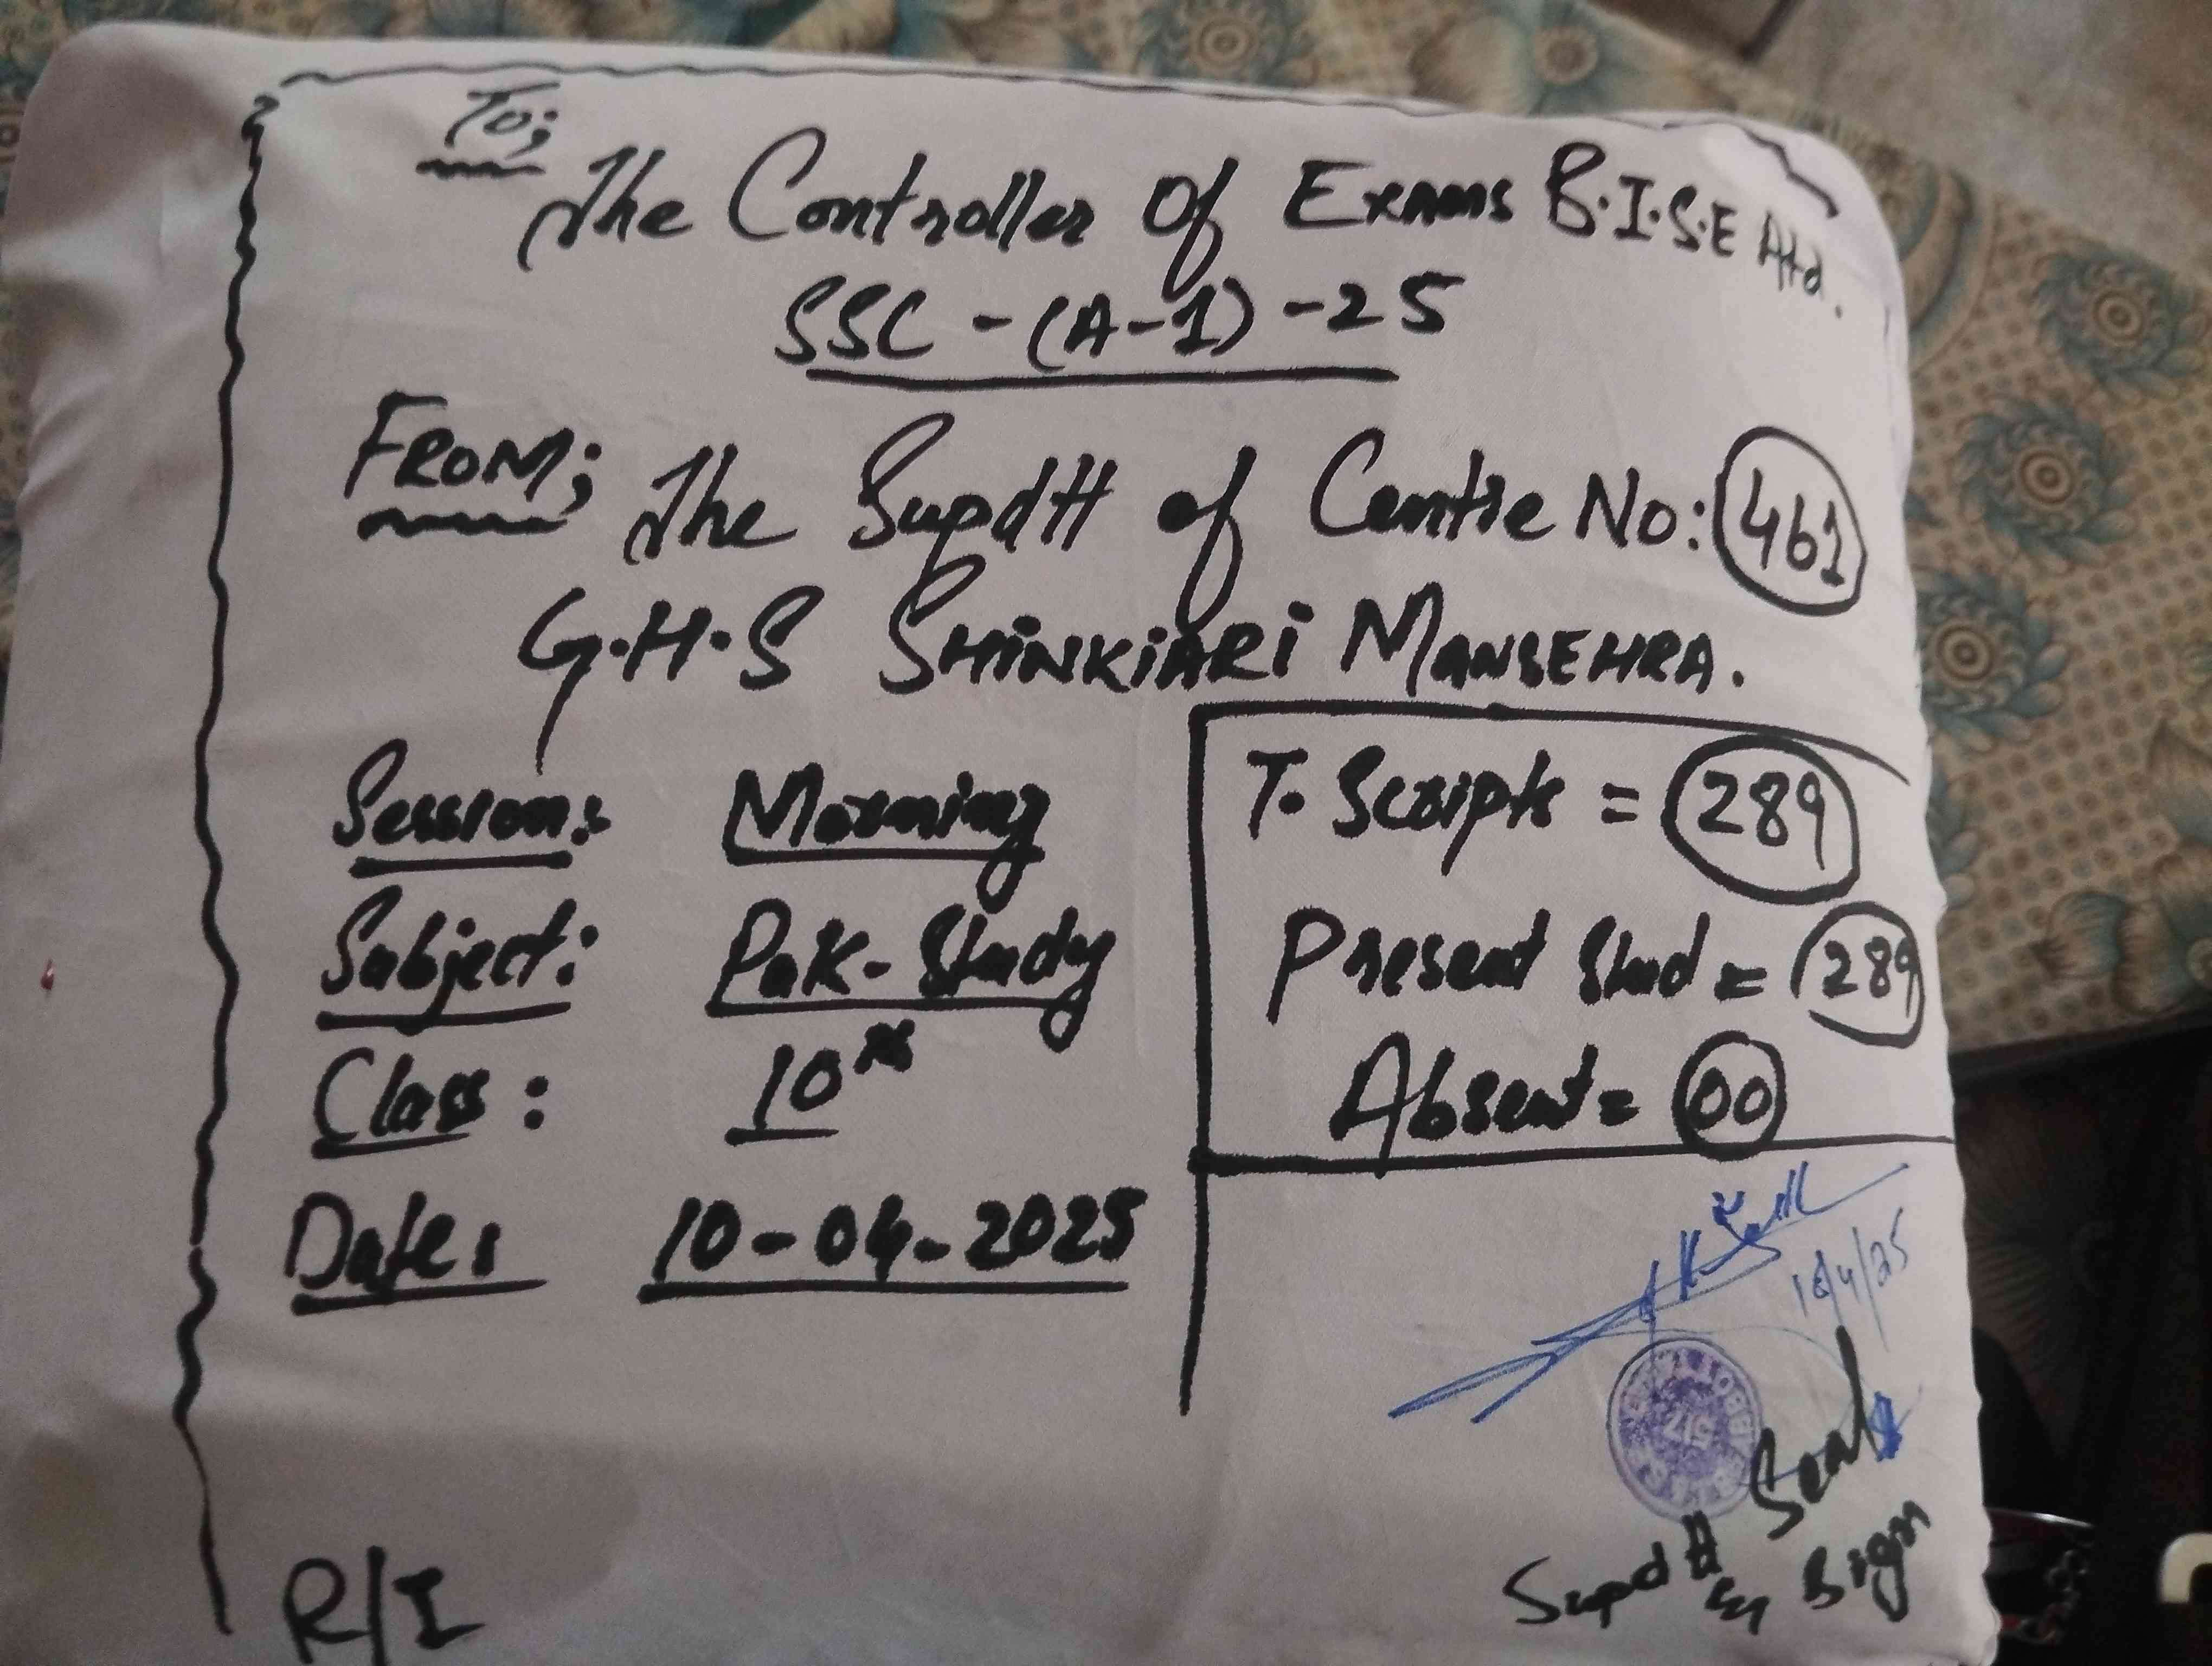 To;
The Controller Of Exams B.I.S.E Atd.
SSC - (A-1) - 25
FROM; The Supdtt of Centre No: 461
G.H.S SHiNKiARi MANSEHRA.
Session: Morning
Subject: Pak-Study
Class: 10th
Date: 10-04-2025
T. Scripts = 289
Present Stud = 289
Absent = 00
517
Supdtt Seal
& Sign
R/I